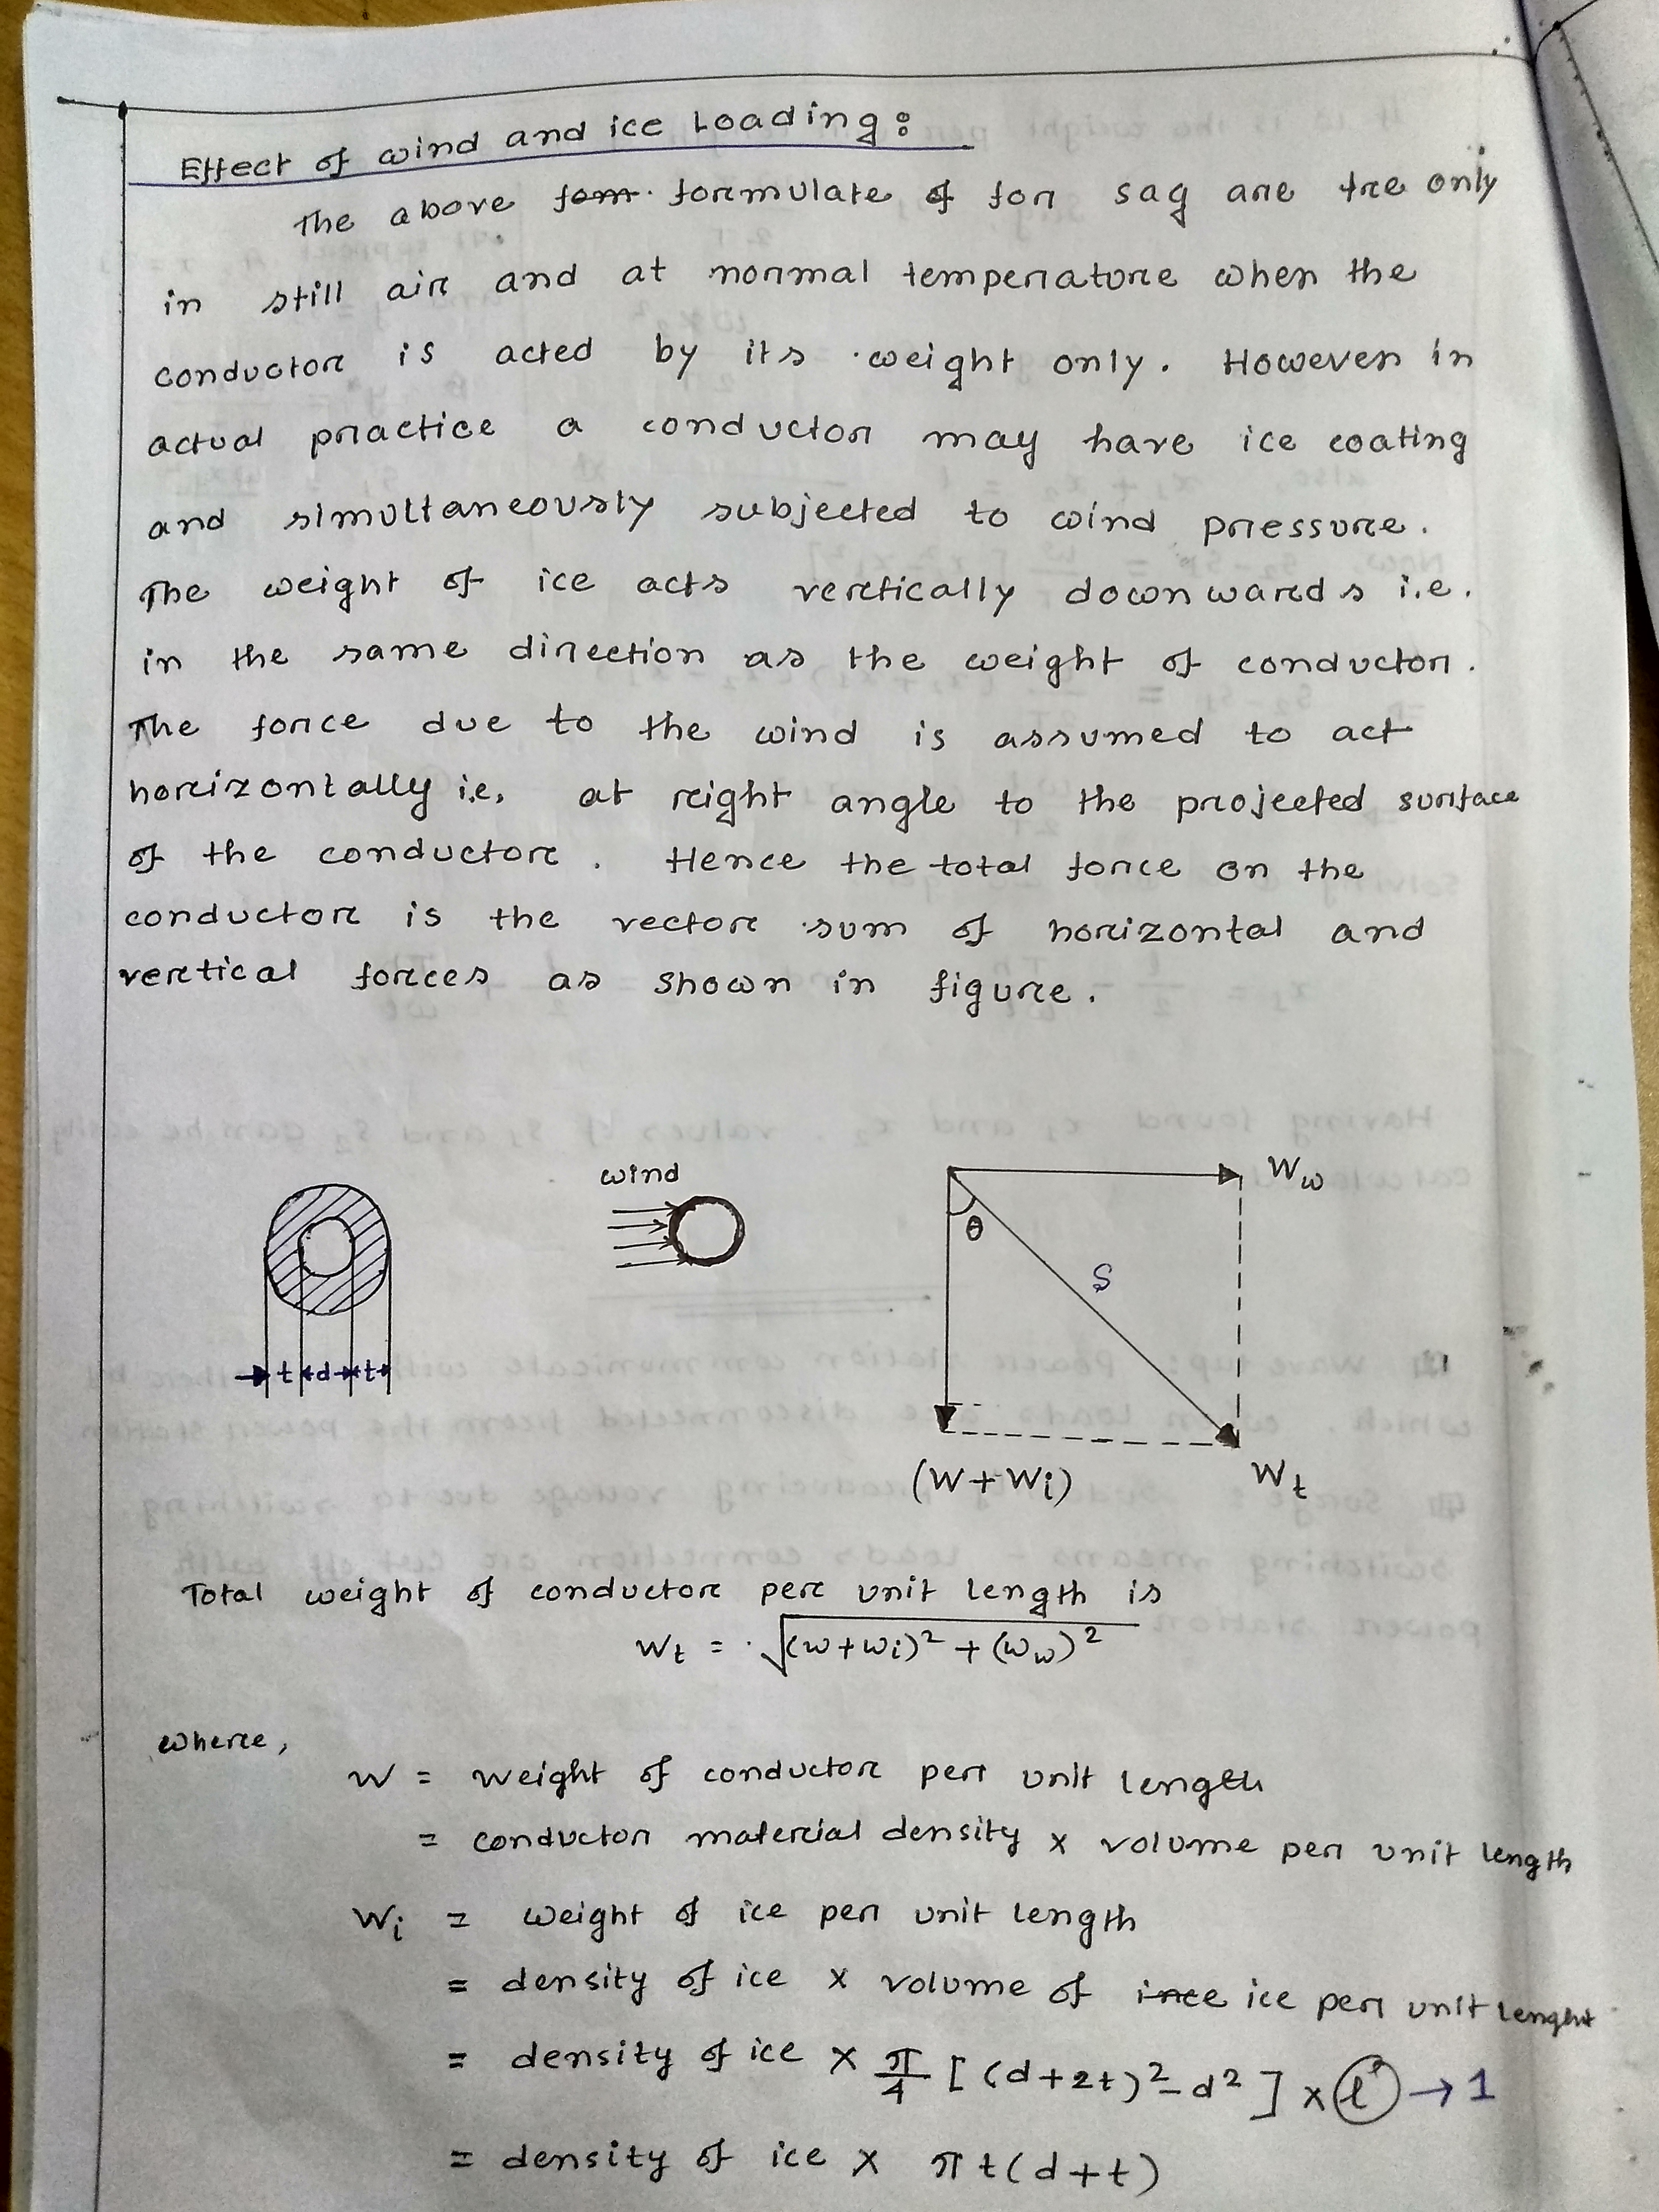 Effect of wind and ice Loading:
The above formulate of for sag are tre only
in still air and at normal temperature when the
conductor is acted by its weight only. However in
actual practice a conductor may have ice coating
and simultaneously subjected to wind pressure.
The weight of ice acts vertically downwards i.e.
in the same direction as the weight of conductor.
The force due to the wind is assumed to act
horizontally i.e. at right angle to the projected surface
of the conductor. Hence the total force on the
conductor is the vector sum of horizontal and
vertical forces as shown in figure.
wind
W_w
θ
S
t d t
(W+Wi)
W_t
Total weight of conductor per unit length is
W_t = √((w+wi)² + (w_w)²)
where,
W = weight of conductor per unit length
= conductor material density × volume per unit length
Wi = weight of ice per unit length
= density of ice × volume of ice per unit lenght
= density of ice × π/4 [(d+2t)² - d²] × l → 1
= density of ice × πt(d+t)